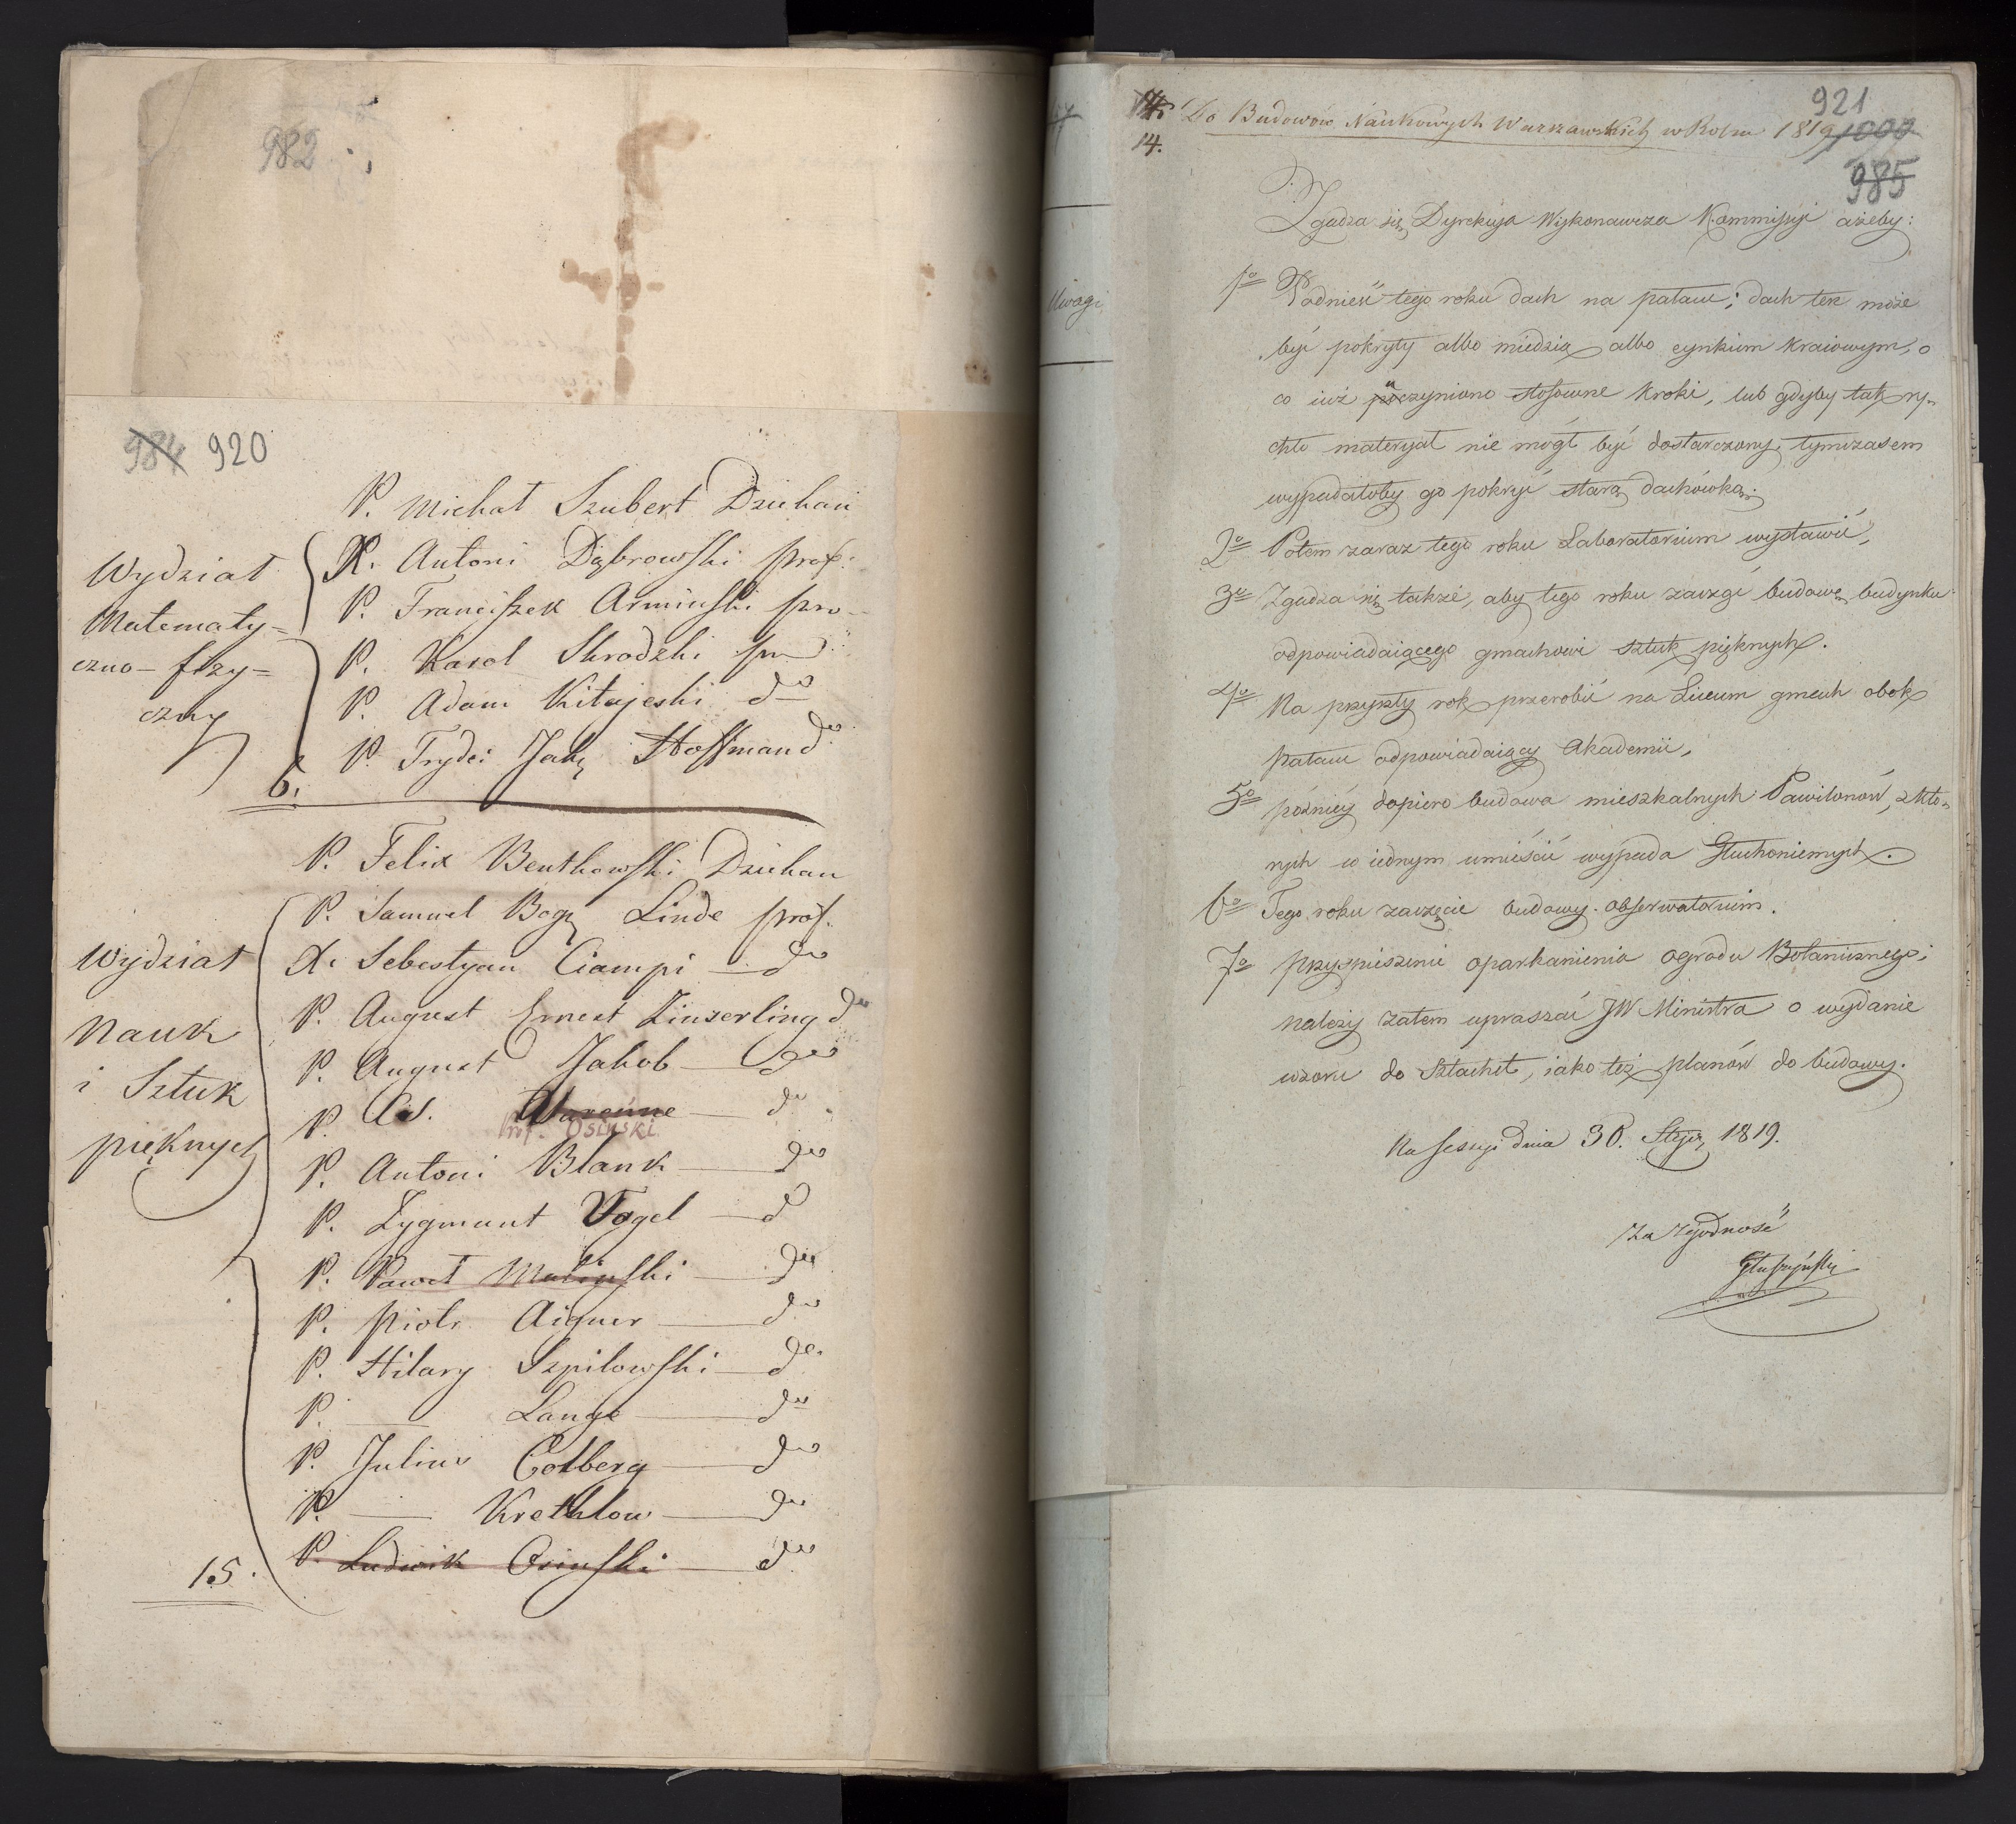 982
984 920
P. Michał Szubert Dziekan
Wydział
Matematy=
czno-fizy=
czny
X. Antoni Dąbrowski prof:
P. Franciszek Armiński pro
P. Karol Skrodzki pro
P. Adam Kitajeski do
P. Fryder: Jak: Hoffman do
6.
P. Felix Bentkowski Dziekan
Wydział
Nauk
i Sztuk
pięknych
P. Samuel Bog: Linde prof.
X. Sebestyan Ciampi — do
P. August Ernest Zinserling do
P. August Jakob — do
P. do
Prof. OSIŃSKI
P. Antoni Blank — do
P. Zygmunt Vogel — do
P. Paweł Maliński — do
P. Piotr Aigner — do
P. Hilary Szpilowski — do
P. — Lange — do
P. Julius Colberg — do
P. — Krethlow — do
P. Ludwik Osiński — do
15.
Uwagi
921
14. Do Budowów Naukowych Warszawskich w Roku 1819 1000
985
Zgadza się Dyrekcya Wykonawcza Kommissyi ażeby:
1o Podnieść tego roku dach na pałacu; dach ten może
być pokryty albo miedzią albo cynkiem kraiowym, o
co iuż uczyniono stosowne kroki, lub gdyby tak ry=
chło materyał nie mógł być dostarczony, tymczasem
wypadałoby go pokryć starą dachówką;
2o Potem zaraz tego roku Laboratorium wystawić,
3o Zgadza się także, aby tego roku zacząć budowę budynku
odpowiadaiącego gmachowi sztuk pięknych.
4o Na przyszły rok przerobić na Liceum gmach obok
pałacu odpowiadaiący Akademii,
5o późniéy dopiero budowa mieszkalnych Pawilonów, z któ=
rych w iednym umieścić wypada Głuchoniemych.
6o Tego roku zaczęcie budowy obserwatorium.
7o przyspieszenie oparkanienia ogrodu Botanicznego;
należy zatem upraszać JW Ministra o wydanie
wzoru do Sztachet, iako też planów do budowy.
Na sessyi dnia 30. Stycz: 1819.
Za zgodność
Głuszyński